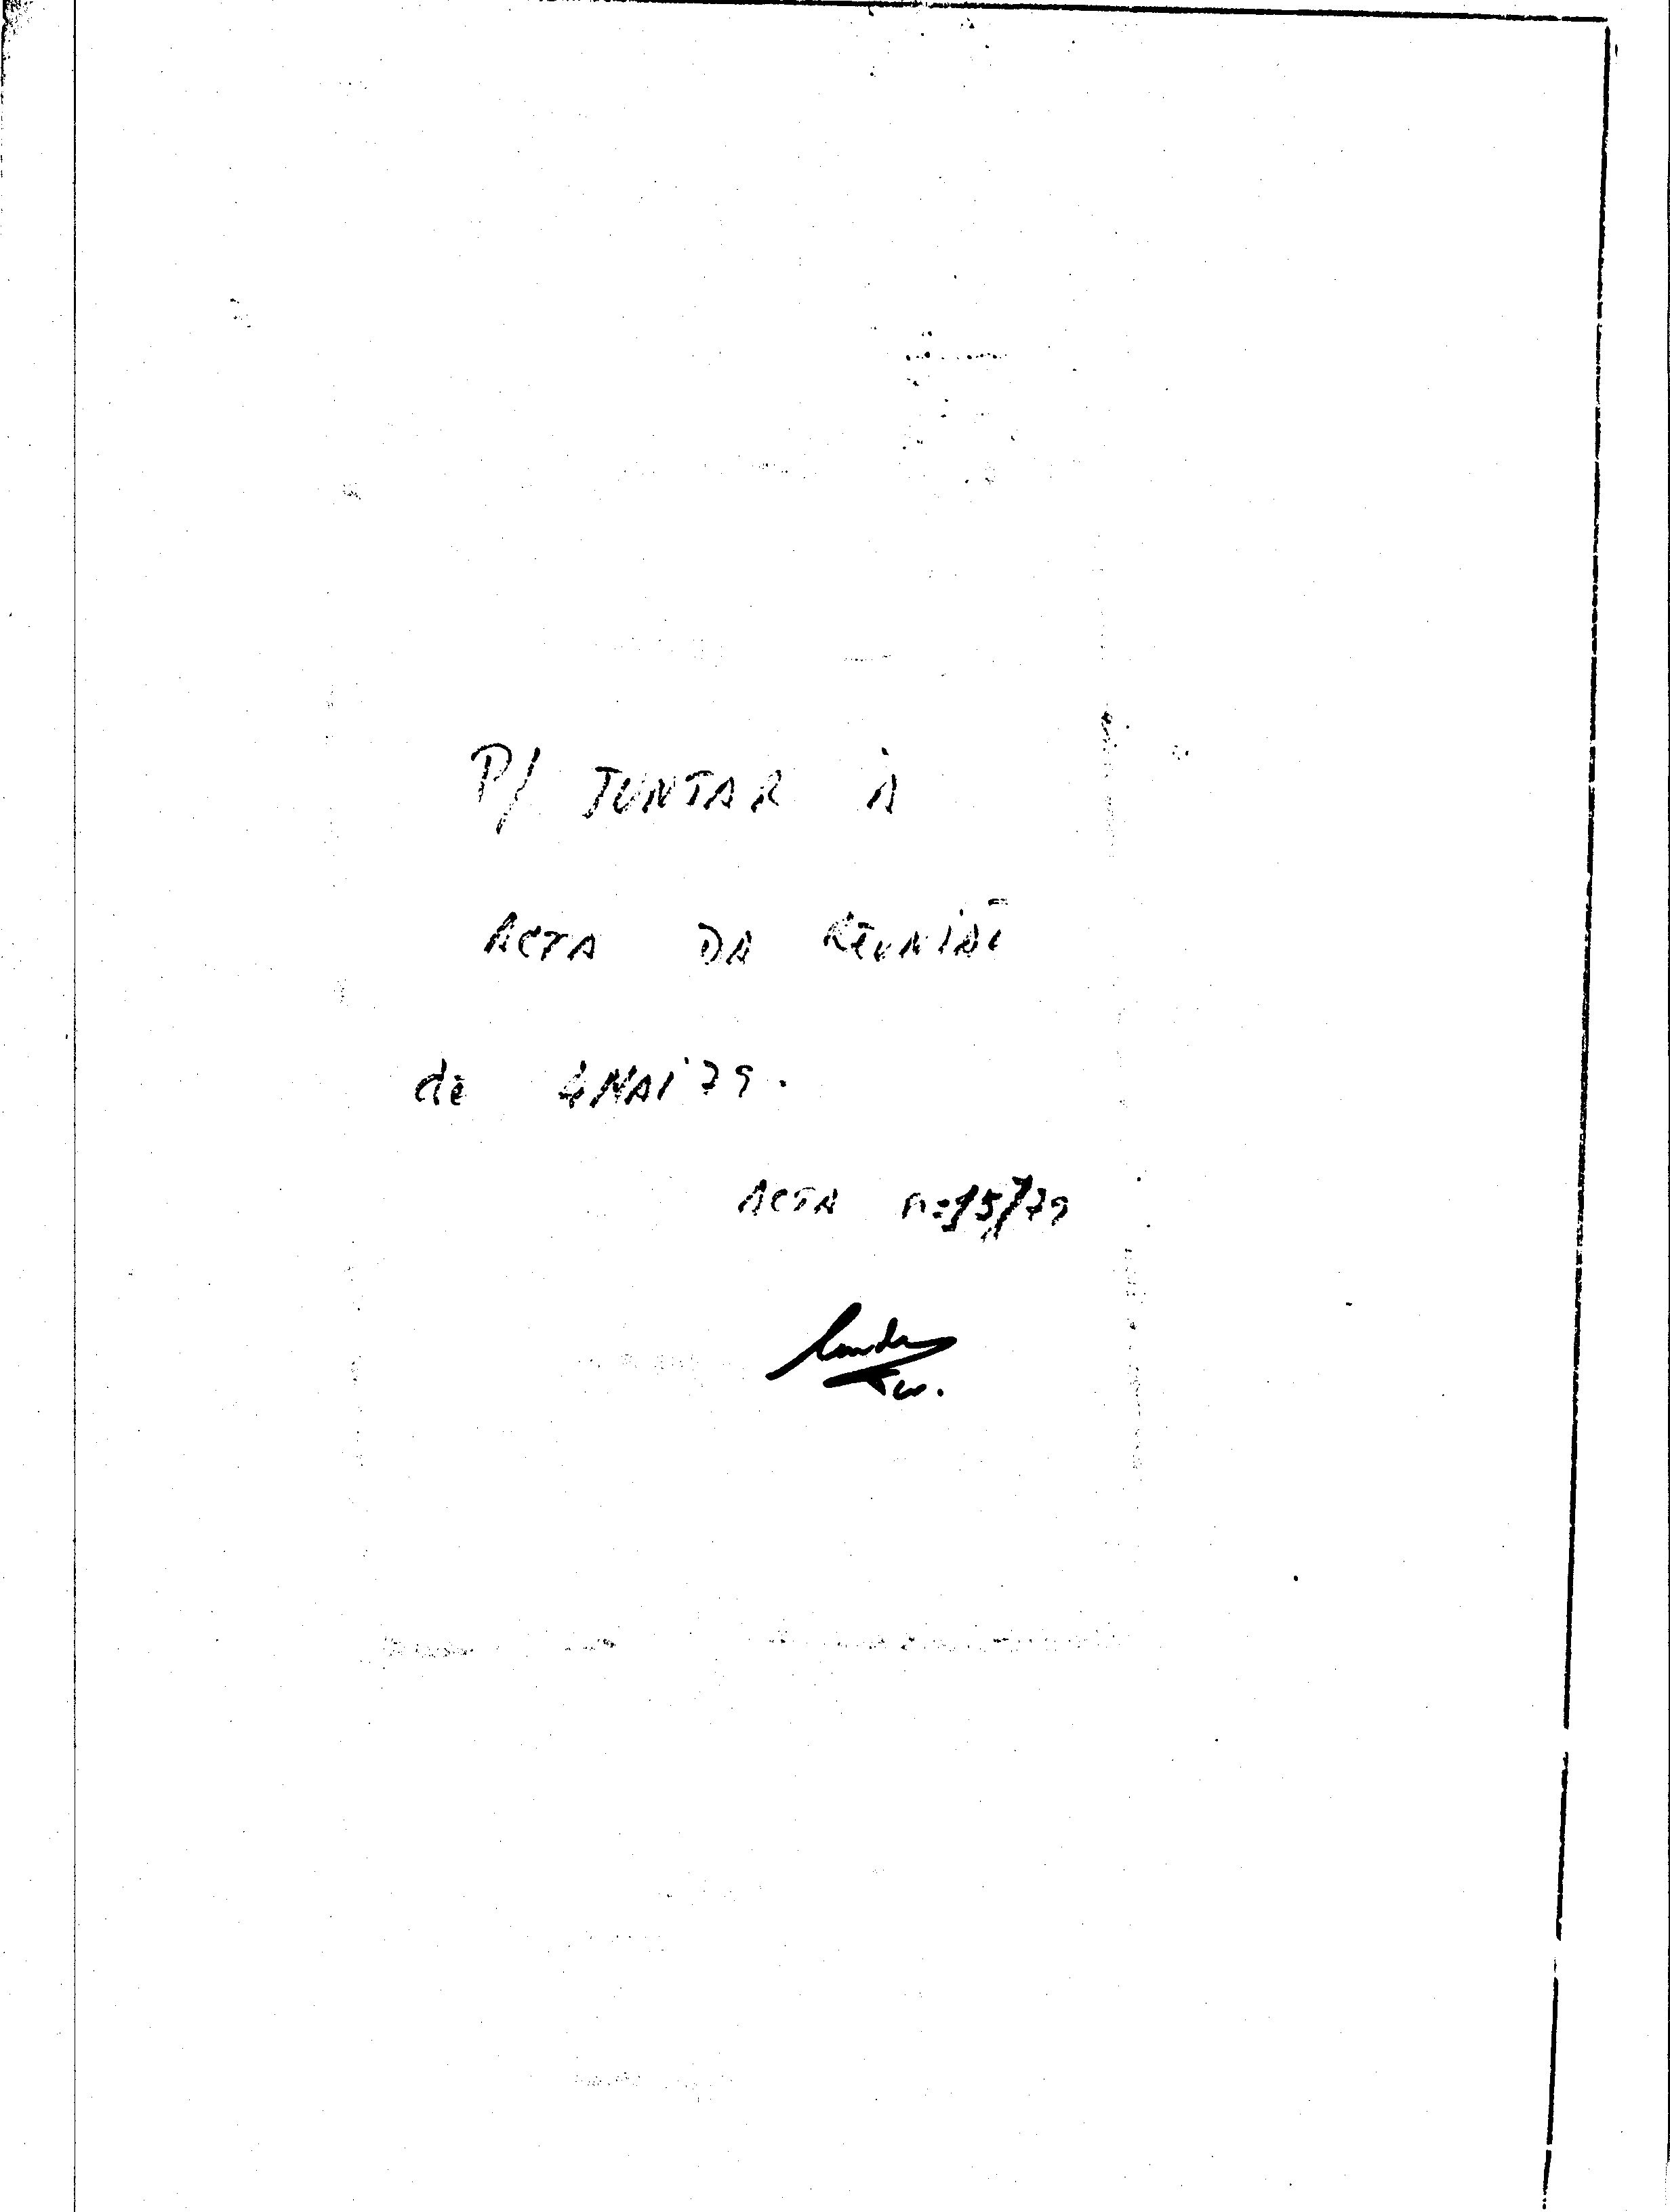 P/ JUNTAR À
ACTA DA REUNIÃO
de 4MAI'79.
ACTA nº 15/79